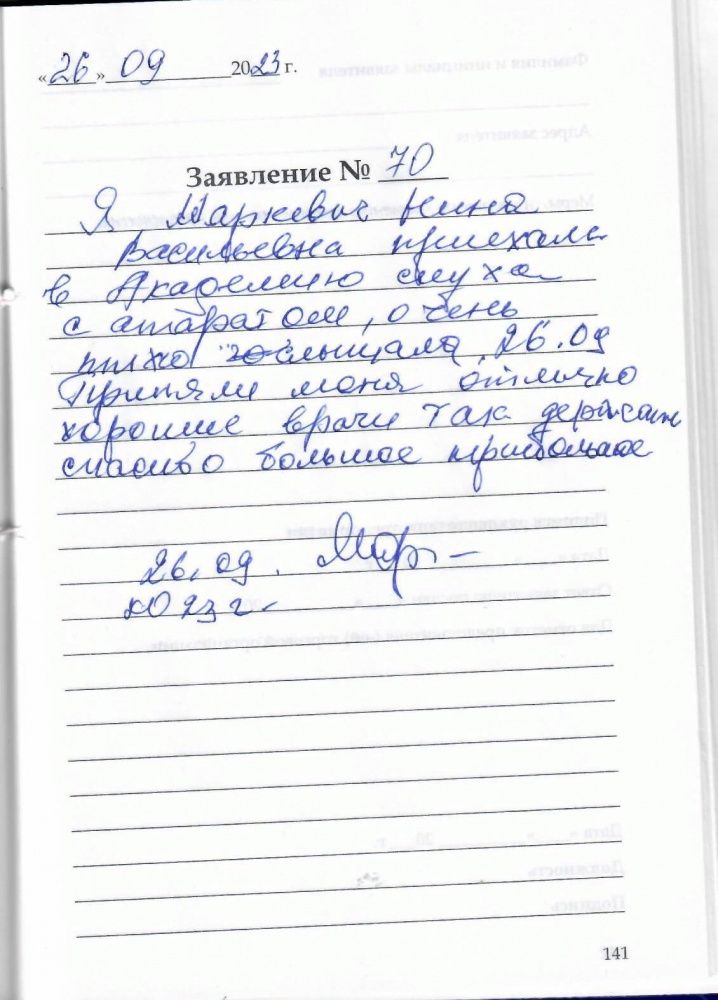 «26» 09 2023 г.
Заявление № 70
Я Маркевич Нина
Васильевна приехала
в Академию слуха
с аппаратом, очень
тихо слышала 26.09
Приняли меня отлично
хорошие врачи так держать
спасибо большое прибольшое
26.09.
2023 г.
141